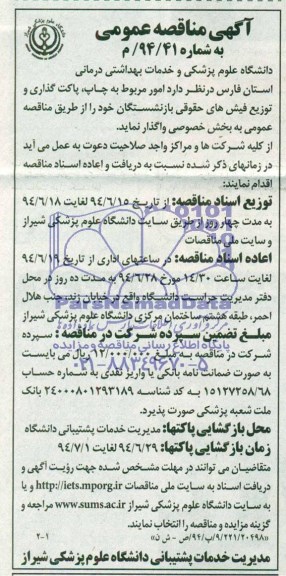 آگهی مناقصه عمومی
به شماره ۹۴/۴۱/ م
دانشگاه علوم پزشکی و خدمات بهداشتی درمانی
استان فارس درنظر دارد امور مربوط به چاپ، پاکت گذاری و
توزیع فیش های حقوقی بازنشستگان خود را از طریق مناقصه
عمومی به بخش خصوصی واگذار نماید.
از کلیه شرکت ها و مراکز واجد صلاحیت دعوت به عمل می آید
در زمانهای ذکر شده نسبت به دریافت و اعاده اسناد مناقصه
اقدام نمایند:
توزیع اسناد مناقصه: از تاریخ ۹۴/۶/۱۵ لغایت ۹۴/۶/۱۸
به مدت چهار روز از طریق سایت دانشگاه علوم پزشکی شیراز
و سایت ملی مناقصات
اعاده اسناد مناقصه: در ساعتهای اداری از تاریخ ۹۴/۶/۱۹
لغایت ساعت ۱۴/۳۰ مورخ ۹۴/۶/۲۸ به مدت ده روز در محل
دفتر مدیریت حراست دانشگاه واقع در خیابان زند جنب هلال
احمر، طبقه هشتم ساختمان مرکزی دانشگاه علوم پزشکی شیراز
مبلغ تضمین سپرده شرکت در مناقصه: سپرده
شرکت در مناقصه به مبلغ ۱۲/۰۰۰/۰۲۰ ریال می بایست
به صورت ضمانت نامه بانکی یا واریز نقدی به شماره حساب
۱۵۱۲۷۲۵۸/۶۸ به کد شناسه ۲۴۰۰۰۸۰۱۲۹۳۱۸۹ بانک
ملت شعبه پزشکی صورت پذیرد.
محل بازگشایی پاکتها: مدیریت خدمات پشتیبانی دانشگاه
زمان بازگشایی پاکتها: ۹۴/۶/۲۹ لغایت ۹۴/۷/۱
متقاضیان می توانند در مهلت مشخص شده جهت رؤیت آگهی و
دریافت اسناد به سایت ملی مناقصات http://iets.mporg.ir و یا
به سایت دانشگاه علوم پزشکی شیراز www.sums.ac.ir مراجعه و
گزینه مزایده و مناقصه را انتخاب نمایند.
«۹/۲۲۱/۲۰۴۹۸/پ/۹۴/ص - ش د» ۲-۱
مدیریت خدمات پشتیبانی دانشگاه علوم پزشکی شیراز
ParsNamadData
پایگاه اطلاع رسانی مناقصه و مزایده
۰۲۱-۸۸۳۴۹۶۷۰-۵